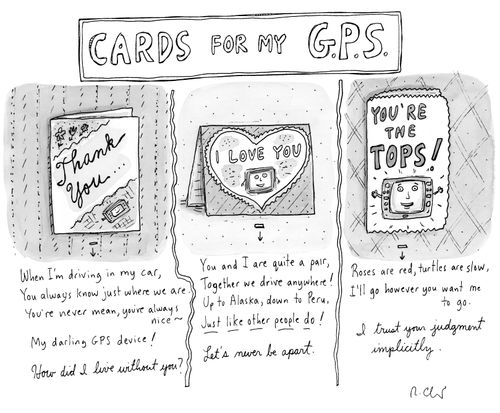 CARDS FOR MY G.P.S.
Thank
You...
When I'm driving in my car,
You always know just where we are
You're never mean, you're always
nice~
My darling GPS device!
How did I live without you?
I LOVE YOU
You and I are quite a pair,
Together we drive anywhere!
Up to Alaska, down to Peru,
Just like other people do!
Let's never be apart.
YOU'RE
THE
TOPS!
Roses are red, turtles are slow,
I'll go however you want me
to go.
I trust your judgment
implicitly.